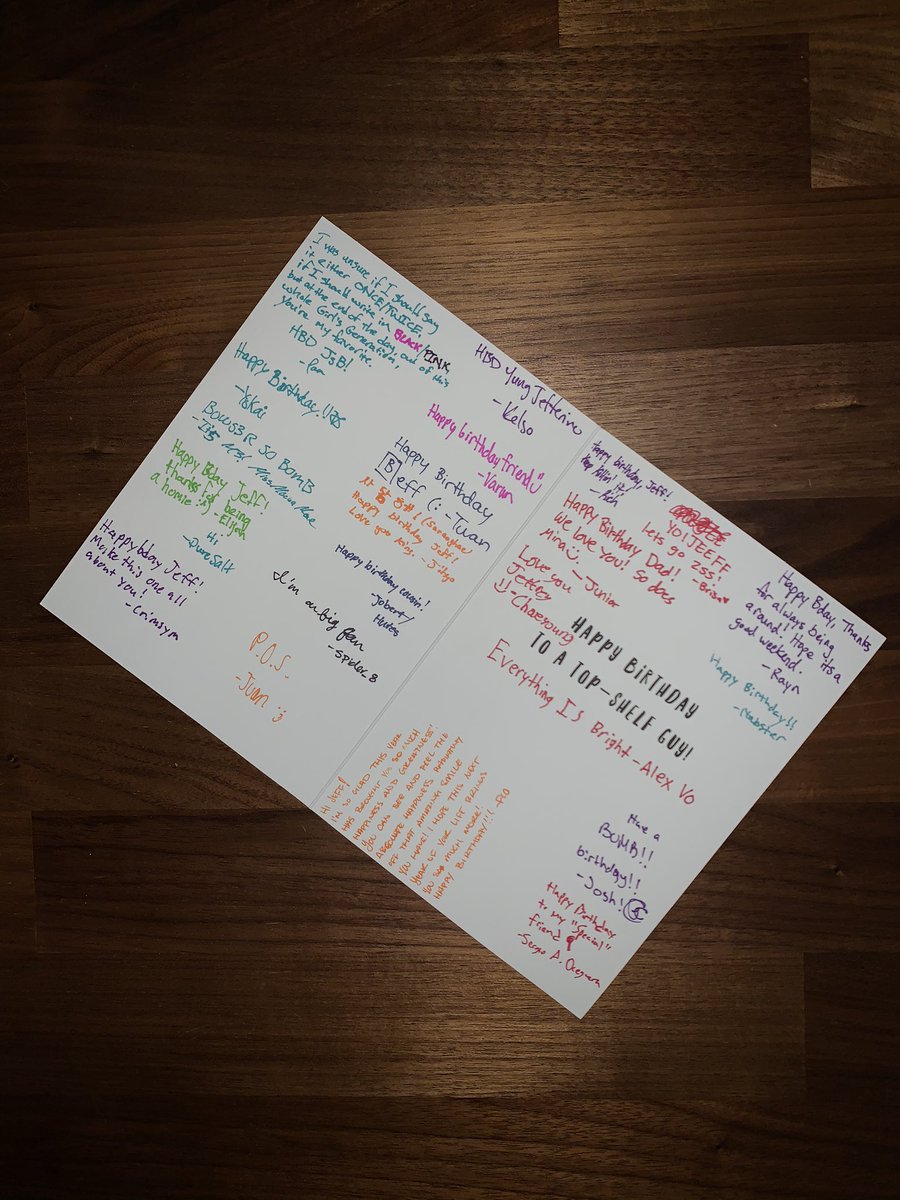 I was unsure if I should say
it either ONCE/TWICE,
if I should write in BLACK/PINK,
but at the end of the day, out of this
whole Girl's Generation,
you're my favorite.
HBD JsB!
Happy Birthday!!
- Yskai
BowsBR SO BomB
Happy Bday Jeff!
thanks for being
a homie :) - Elijah
Hi,
- PureSalt
Happy bday Jeff!
Make this one all
about you!
- Crimsym
HBD Yung Jefferino
- Kelso
Happy birthday friend
- Varun
Happy Birthday
[B]eff (: - Tuan
Happy birthday Jeff!
Happy birthday cousin!
- Jobert/
I'm a big fan
- spider 8
P.O.S.
- Juan :)
Hi Jeff!
I'm so glad this year
has brought you so much
happiness and greatness!
You can see and feel the
absolute happiness radiating
off that amazing smile
you have! I hope this next
year of your life brings
you so much more!
Happy Birthday!!! - Flo
Happy birthday, Jeff!
- Rich
YO! JEEFF
Lets go zss!
- Brisa
Happy Birthday Dad!
We love you! So does
Mina - Junior
Love you
Jeffrey
- Chaeyoung
HAPPY BIRTHDAY
TO A TOP-SHELF GUY!
Everything Is Bright - Alex Vo
Happy Bday, Thanks
for always being
around! Hope its a
good weekend.
- Rayn
Happy Birthday!!
- Nabster
Have a
BOMB!!
birthday!!
- Josh!
Happy Birthday
to my "Special"
friend
- Sergio A.